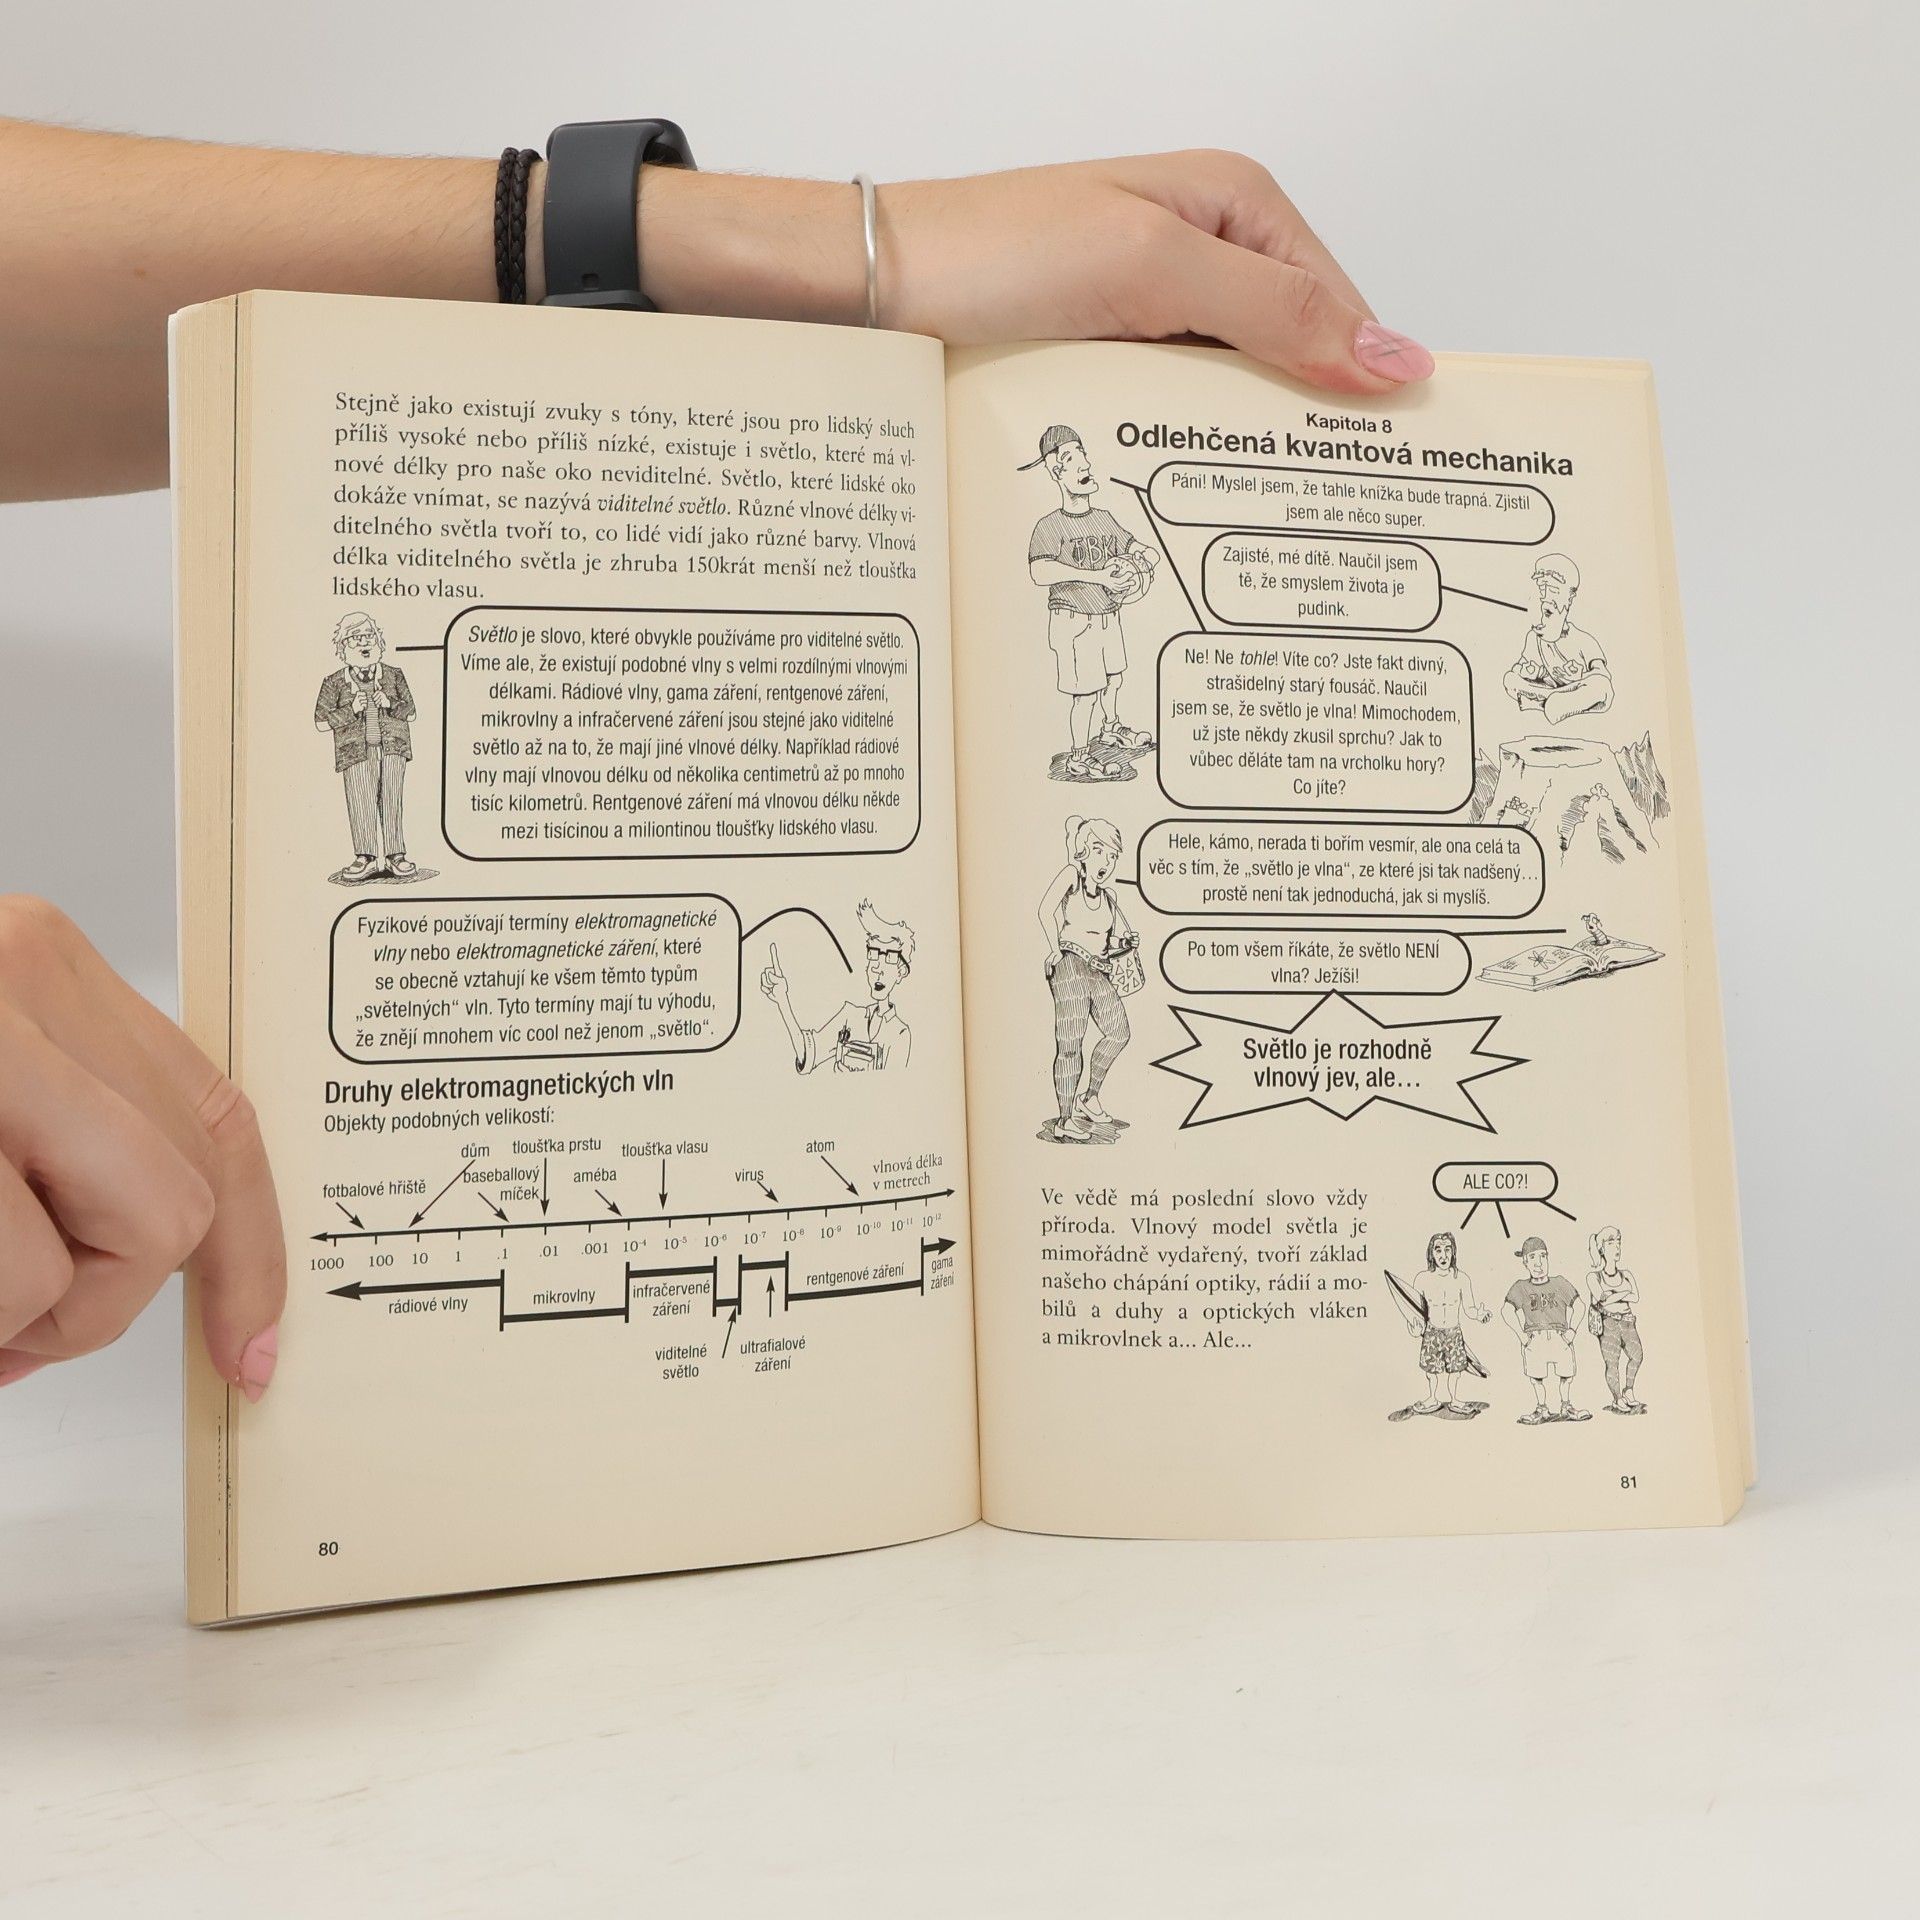 Stejně jako existují zvuky s tóny, které jsou pro lidský sluch
příliš vysoké nebo příliš nízké, existuje i světlo, které má vl-
nové délky pro naše oko neviditelné. Světlo, které lidské oko
dokáže vnímat, se nazývá viditelné světlo. Různé vlnové délky vi-
ditelného světla tvoří to, co lidé vidí jako různé barvy. Vlnová
délka viditelného světla je zhruba 150krát menší než tloušťka
lidského vlasu.
Světlo je slovo, které obvykle používáme pro viditelné světlo.
Víme ale, že existují podobné vlny s velmi rozdílnými vlnovými
délkami. Rádiové vlny, gama záření, rentgenové záření,
mikrovlny a infračervené záření jsou stejné jako viditelné
světlo až na to, že mají jiné vlnové délky. Například rádiové
vlny mají vlnovou délku od několika centimetrů až po mnoho
tisíc kilometrů. Rentgenové záření má vlnovou délku někde
mezi tisícinou a miliontinou tloušťky lidského vlasu.
Fyzikové používají termíny elektromagnetické
vlny nebo elektromagnetické záření, které
se obecně vztahují ke všem těmto typům
„světelných“ vln. Tyto termíny mají tu výhodu,
že znějí mnohem víc cool než jenom „světlo“.
Druhy elektromagnetických vln
Objekty podobných velikostí:
fotbalové hřiště
dům
baseballový
míček
tloušťka prstu
améba
tloušťka vlasu
virus
atom
vlnová délka
v metrech
1000 100 10 1 .1 .01 .001 10⁻⁴ 10⁻⁵ 10⁻⁶ 10⁻⁷ 10⁻⁸ 10⁻⁹ 10⁻¹⁰ 10⁻¹¹ 10⁻¹²
rádiové vlny
mikrovlny
infračervené
záření
viditelné
světlo
ultrafialové
záření
rentgenové záření
gama
záření
80
Kapitola 8
Odlehčená kvantová mechanika
Páni! Myslel jsem, že tahle knížka bude trapná. Zjistil
jsem ale něco super.
Zajisté, mé dítě. Naučil jsem
tě, že smyslem života je
pudink.
Ne! Ne tohle! Víte co? Jste fakt divný,
strašidelný starý fousáč. Naučil
jsem se, že světlo je vlna! Mimochodem,
už jste někdy zkusil sprchu? Jak to
vůbec děláte tam na vrcholku hory?
Co jíte?
Hele, kámo, nerada ti bořím vesmír, ale ona celá ta
věc s tím, že „světlo je vlna“, ze které jsi tak nadšený…
prostě není tak jednoduchá, jak si myslíš.
Po tom všem říkáte, že světlo NENÍ
vlna? Ježíši!
Světlo je rozhodně
vlnový jev, ale…
Ve vědě má poslední slovo vždy
příroda. Vlnový model světla je
mimořádně vydařený, tvoří základ
našeho chápání optiky, rádií a mo-
bilů a duhy a optických vláken
a mikrovlnek a… Ale…
ALE CO?!
81